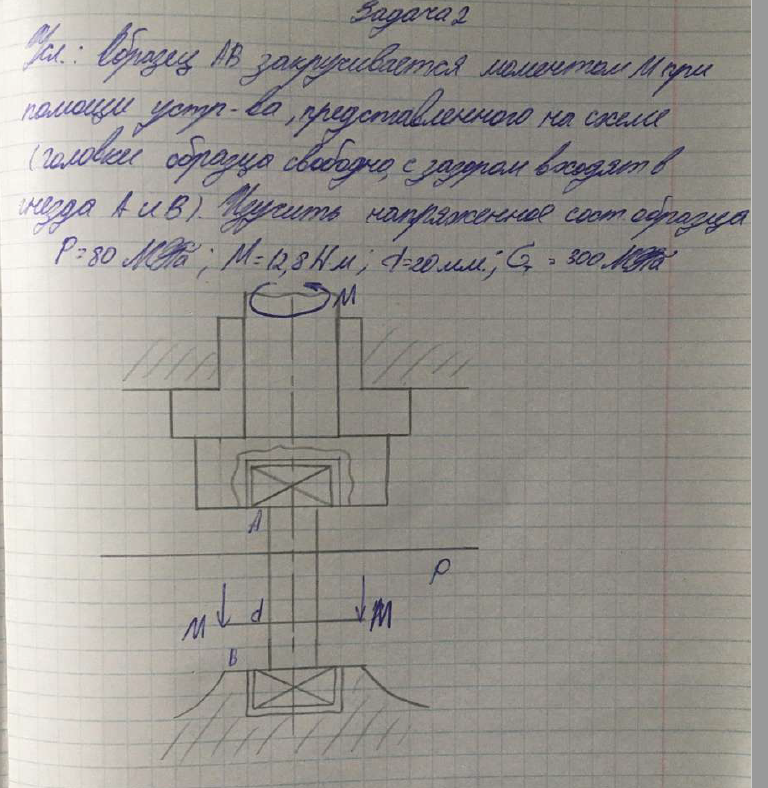 Задача 2
Усл.: Образец АВ закручивается моментом М при
помощи устр-ва, представленного на схеме
(головки образца свободно, с зазором входят в
гнезда А и В). Изучить напряженное сост. образца
P=80 МПа; М=12,8 Нм; d=20 мм.; = 300 МПа
М
А
P
М d М
В